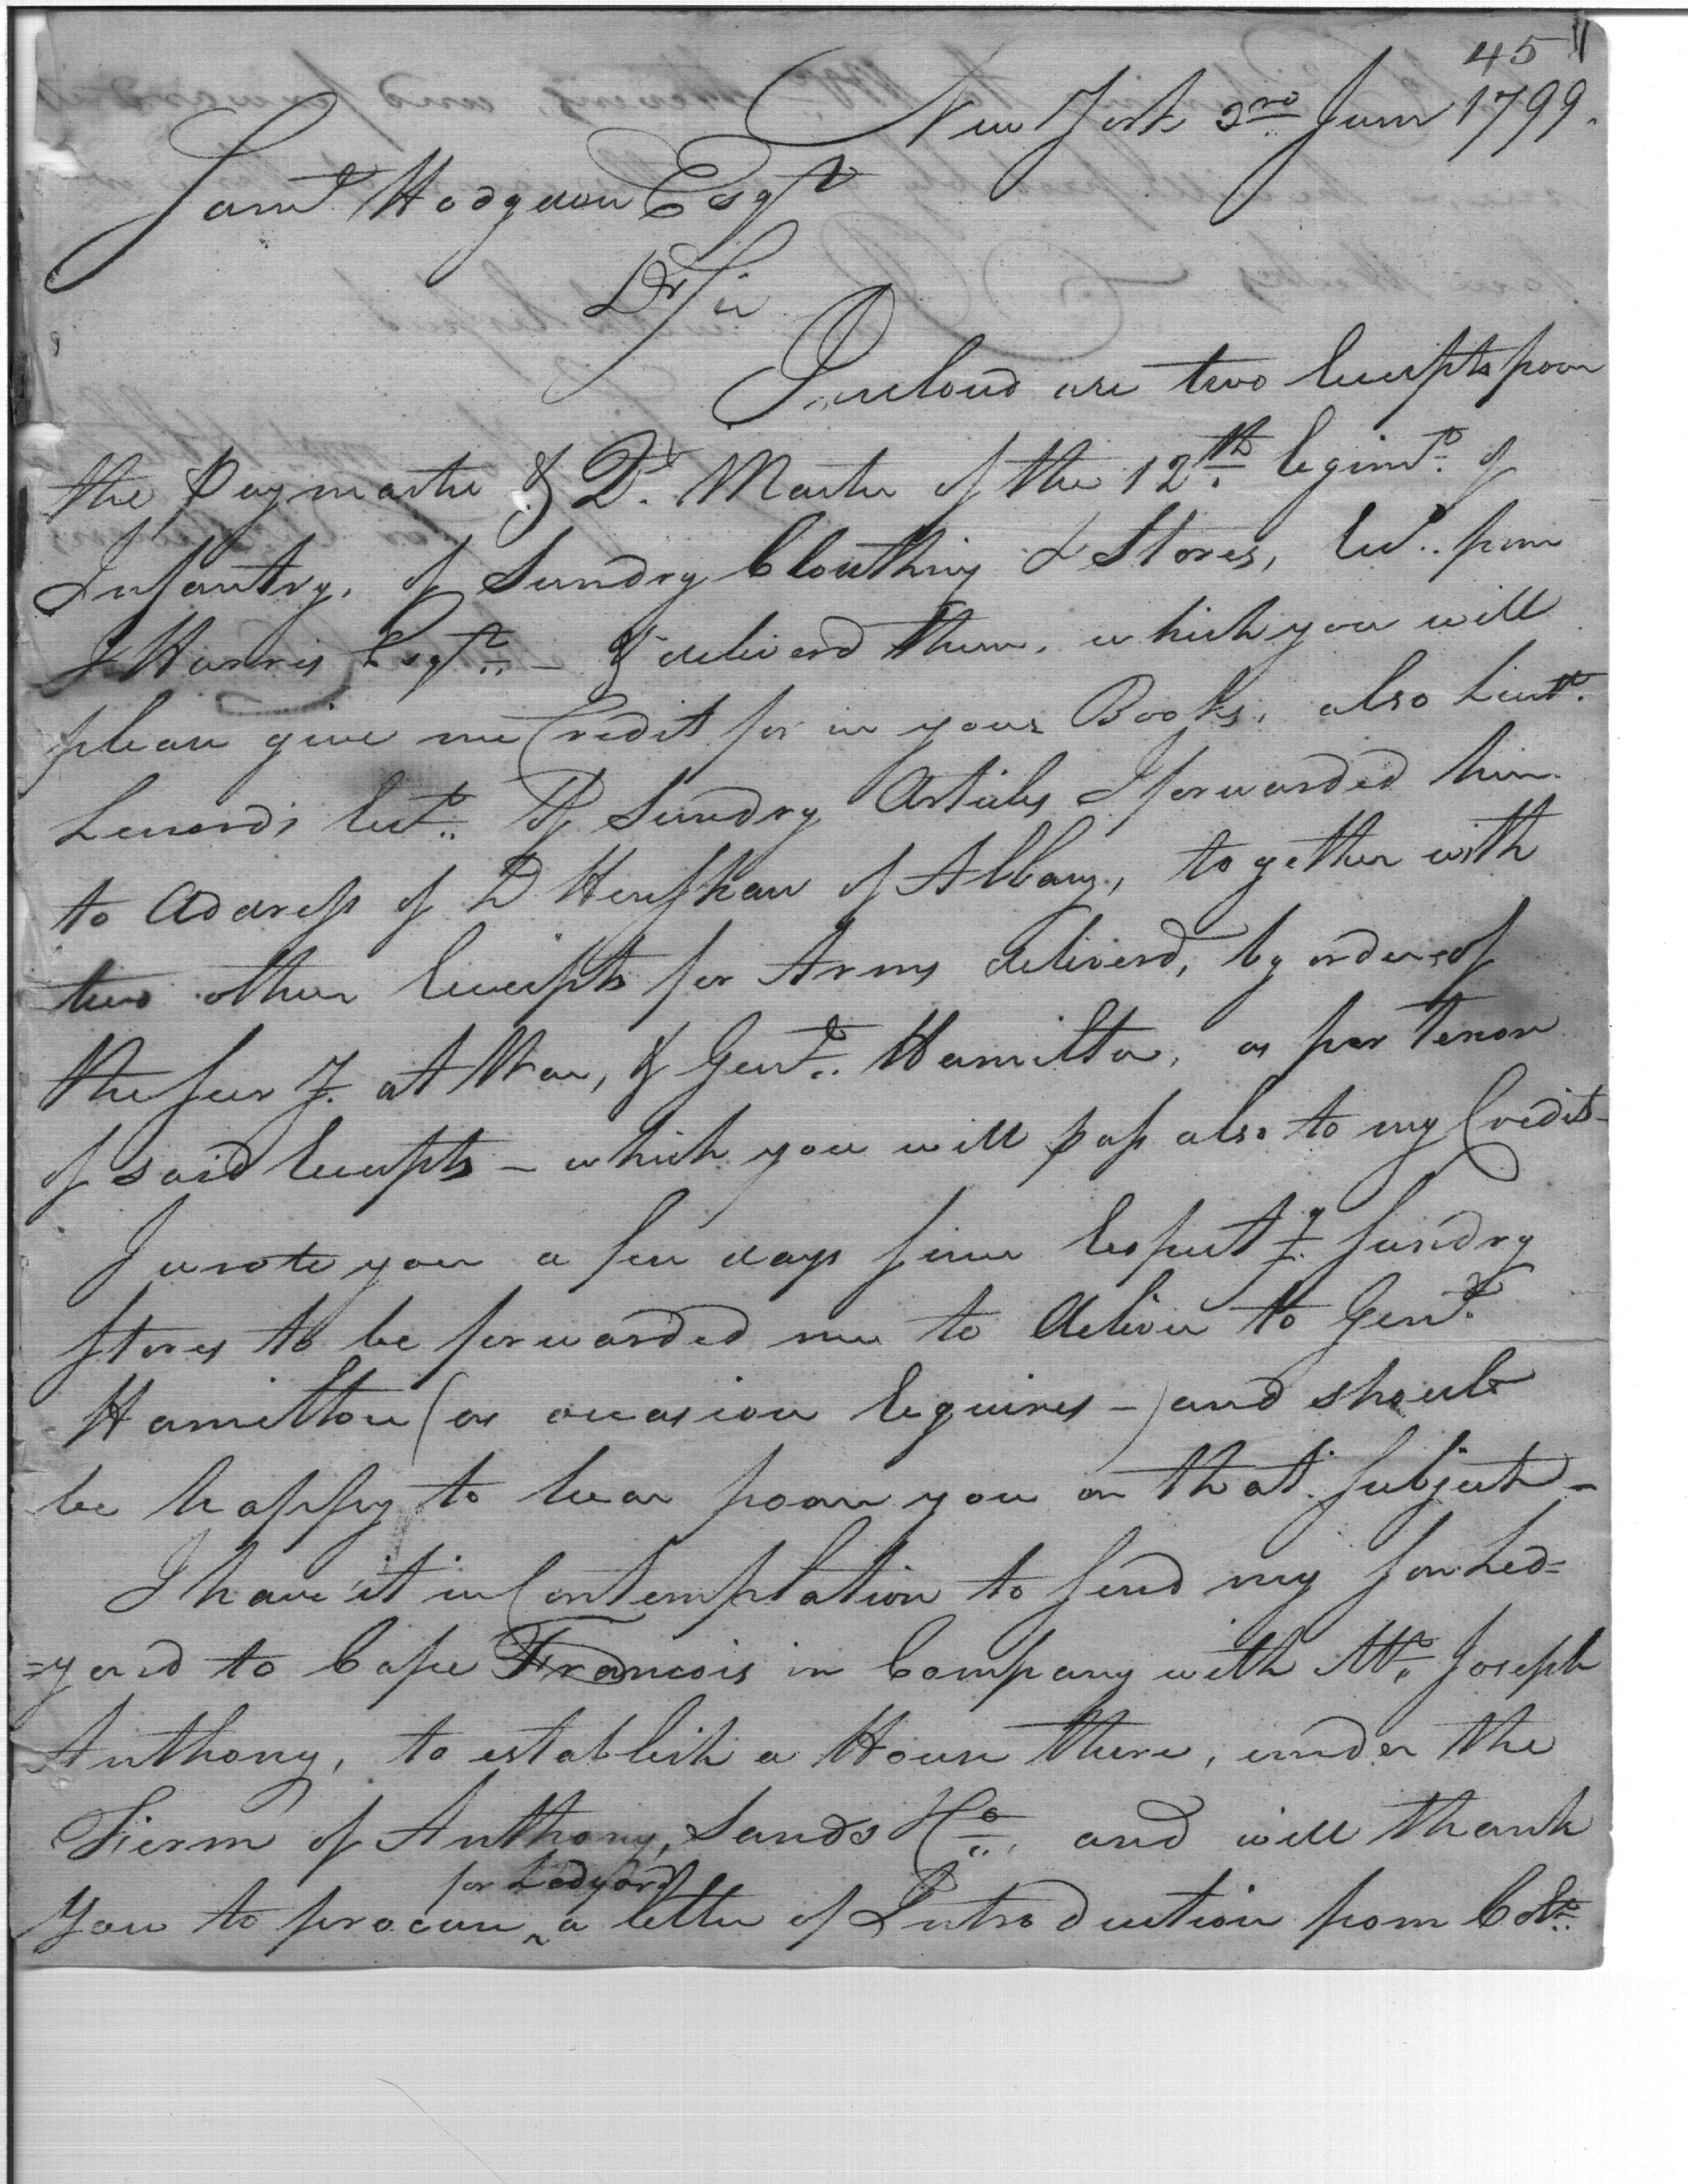 45
New York 2nd June 1799.
Saml. Hodgdon Esqr
Dr Sir
Inclosed are two Receipts from
the Paymaster & Qr. Master of the 12th. Regimt. of
Infantry, of Sundry Cloathing & Stores, Recd. from
J Harris Esqr. - & deliverd them, which you will
please give me Credit for in your Books, also Lieut.
Lenords Rect. of Sundry Articles I forwarded him
to Address of D Henshaw of Albany, together with
two other Receipts for Arms deliverd, by orders of
the Secry. at War, & Genl. Hamilton, as per Tenor
of said Receipts - which you will pass also to my Credit -
I wrote you a few days since Respectg. Sundry
Stores to be forwarded me to deliver to Genl.
Hamilton (as occasion Requires -) and should
be happy to hear from you on that Subject -
I have it in Contemplation to send my son Led=
=yard to Cape Francois in Company with Mr. Joseph
Anthony, to establish a House there, under the
Fierm of Anthony, Sands & Co. and will thank
for Ledyard
You to procure a letter of Introduction from Colo.